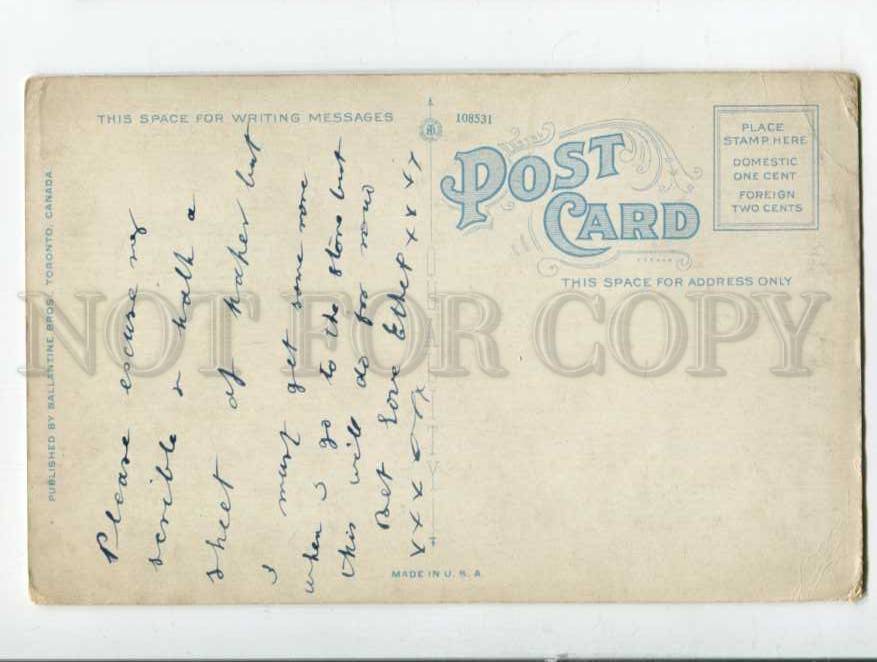 THIS SPACE FOR WRITING MESSAGES
108531
POST CARD
PLACE
STAMP HERE
DOMESTIC
ONE CENT
FOREIGN
TWO CENTS
THIS SPACE FOR ADDRESS ONLY
PUBLISHED BY BALLANTINE BROS., TORONTO, CANADA.
Please escuse my
scrible & half a
sheet of paper but
I must get some more
when I go to the store but
this will do for now
Love Ethel xxxx
xxx
MADE IN U. S. A.
NOT FOR COPY